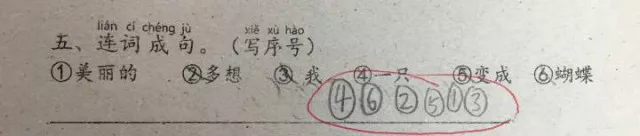 lián cí chéng jù xiě xù hào
五、连词成句。（写序号）
①美丽的 ②多想 ③我 ④一只 ⑤变成 ⑥蝴蝶
④⑥②⑤①③